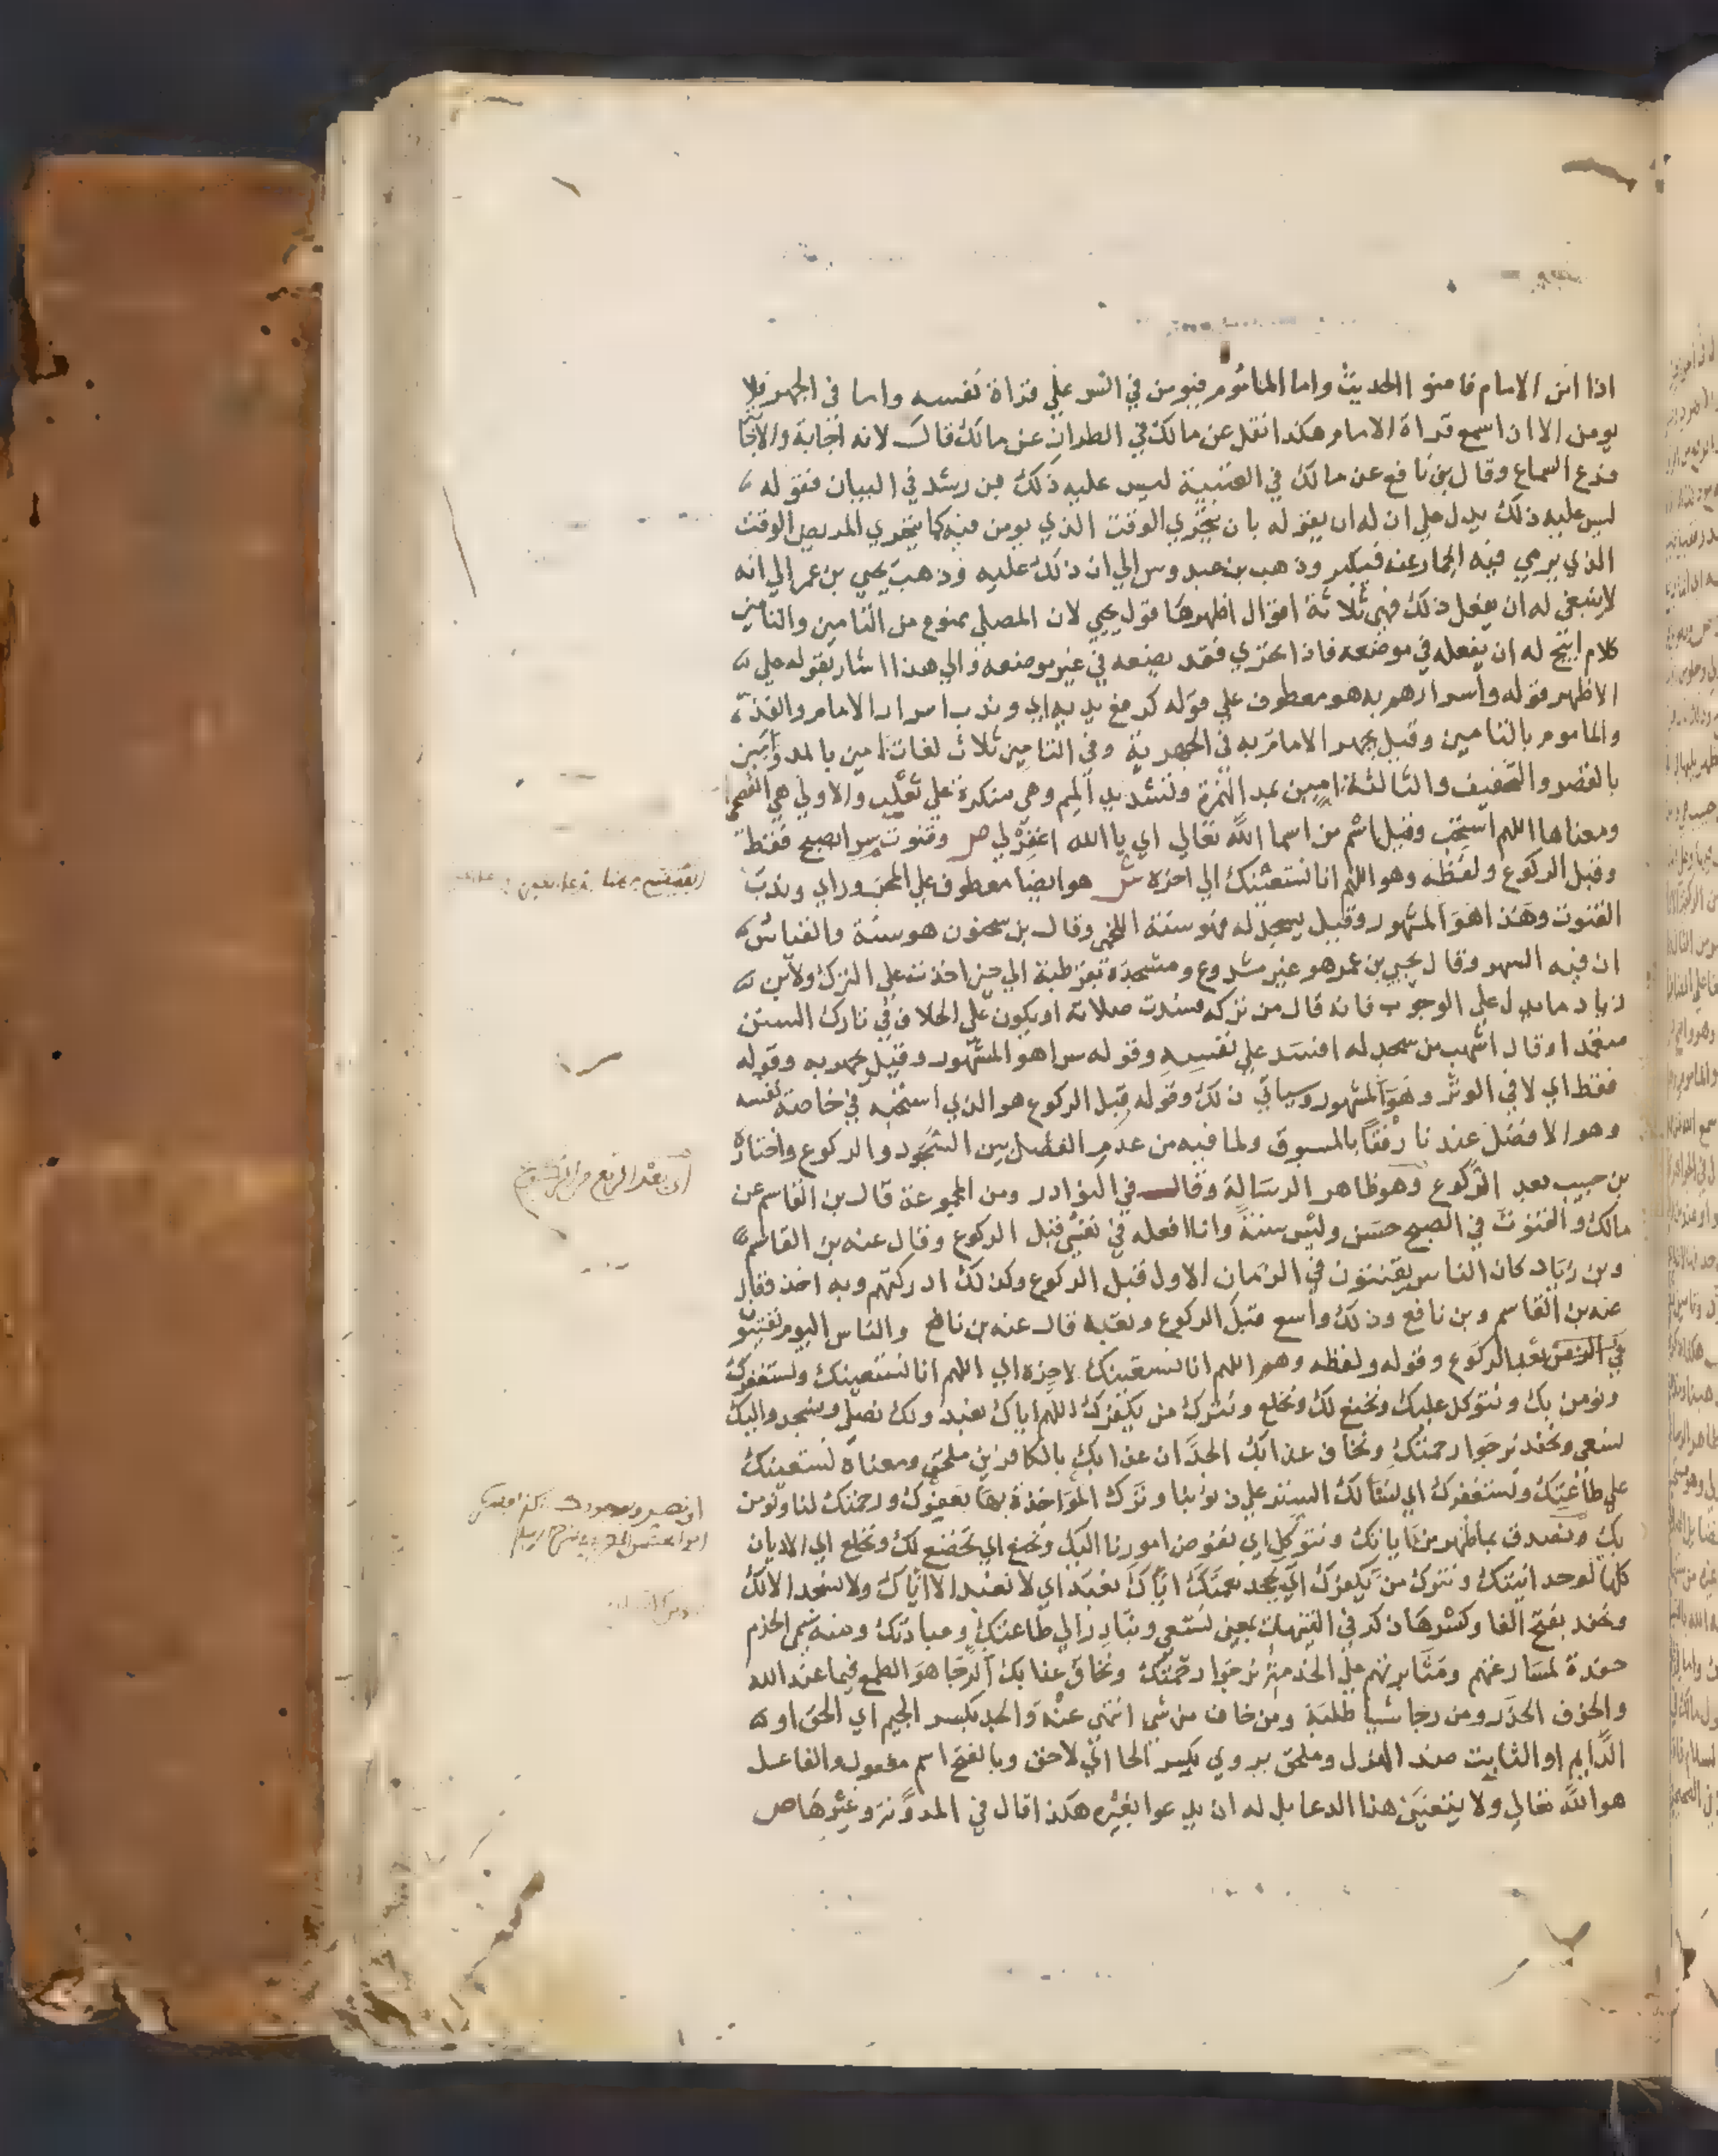 اذا امن الامام فامنوا الحديث واما الماموم فيومن في السر علي قراة نفسه واما في الجهر فلا
يومن الا ان اسمع قراة الامام هكذا نقل عن مالك في الطراز عن مالك قال لانه اجابة والاجابة
فرع السماع وقال بن نافع عن مالك في العتبية ليس عليه ذلك بن رشد في البيان فقوله
ليس عليه ذلك يدل علي ان له ان يقوله بان يتحري الوقت الذي يومن فيه كما يتحري المريض الوقت
الذي يرمي فيه الجمار عنه فيكبر وذهب بن عبدوس الي ان ذلك عليه وذهب يحيي بن عمر الي انه
لا ينبغي له ان يفعل ذلك فهي ثلاثة اقوال اظهرها قول يحيي لان المصلي ممنوع من التامين والتامين
كلام ابيح له ان يفعله في موضعه فاذا تحري فقد يضعه في غير موضعه والي هذا اشار بقوله علي
الاظهر قوله واسرارهم به هو معطوف علي قوله كرفع يديه اي وندب اسرار الامام والفذ
والماموم بالتامين وقيل يجهر الامام به في الجهرية وفي التامين ثلاث لغات امين بالمد وامين
بالقصر والتخفيف والثالثة امين بمد الهمزة وتشديد الميم وهي منكرة علي ثعلب والاولي هي الفصحي
ومعناها اللهم استجب وقيل اسم من اسما الله تعالي اي يا الله اغفر لي ص وقنوت سرا بصبح فقط
وقبل الركوع ولفظه وهو اللهم انا نستعينك الي اخره ش هو ايضا معطوف علي المجرور اي وندب
القنوت وهذا هو المشهور وقيل يسجد له فهو سنة اللخمي وقال بن سحنون هو سنة والقياس
ان فيه السهو وقال يحيي بن عمر هو غير مشروع ومسجده بقرطبة الي حين اخذت علي الترك ولابن
زياد ما يدل علي الوجوب فانه قال من تركه فسدت صلاته او يكون علي الخلاف في تارك السنن
متعمدا وقال اشهب من سجد له افسد علي نفسه وقوله سرا هو المشهور وقيل يجهر به وقوله
فقط اي لا في الوتر وهو المشهور وسياتي ذلك وقوله قبل الركوع هو الذي استحبه في خاصة نفسه
وهو الافضل عندنا رفقا بالمسبوق ولما فيه من عدم الفصل بين السجود والركوع واختاره
بن حبيب بعد الركوع وهو ظاهر الرسالة وقال في النوادر ومن المجموعة قال بن القاسم عن
مالك والقنوت في الصبح حسن وليس سنة وانا افعله في نفسي قبل الركوع وقال عنه بن القاسم
وبن زياد كان الناس يقنتون في الزمان الاول قبل الركوع وكذلك ادركتهم وبه اخذ وقال
عنه بن القاسم وبن نافع وذلك واسع قبل الركوع وبعده قال عنه بن نافع والناس اليوم يقنتو
بعد الركوع وقوله ولفظه وهو اللهم انا نستعينك لاخره اي اللهم انا نستعينك ونستغفرك
ونومن بك ونتوكل عليك ونخنع لك ونخلع ونترك من يكفرك اللهم اياك نعبد ولك نصلي ونسجد واليك
نسعي ونحفد نرجوا رحمتك ونخاف عذابك الجد ان عذابك بالكافرين ملحق ومعناه نستعينك
علي طاعتك ونستغفرك اي نسالك الستر علي ذنوبنا وترك المواخذة بها بعفوك ورحمتك لنا ونومن
بك ونصدق بما ظهر من اياتك ونتوكل اي نفوض امورنا اليك ونخنع اي نخضع لك ونخلع اي الاديان
كلها لوحدانيتك ونترك من يكفرك اي يجحد نعمتك اياك نعبد اي لا نعبد الا اياك ولا نسجد الا لك
ونحفد بفتح الفا وكسرها ذكره في التنبيهات بمعني نسعي ونبادر الي طاعتك وعبادتك ومنه سمي الخدم
حفدة لمسارعتهم ومثابرتهم علي الخدمة نرجوا رحمتك ونخاف عذابك الرجا هو الطمع فيما عند الله
والخوف الحذر ومن رجا شيا طلبه ومن خاف من شي انتهي عنه والجد بكسر الجيم اي الحق او
الدايم او الثابت ضد الهزل وملحق يروي بكسر الحا اي لاحق وبالفتح اسم مفعول والفاعل
هو الله تعالي ولا يتعين هذا الدعا بل له ان يدعوا بغيره هكذا قال في المدونة وغيرها ص
اي بعد الرفع من الركوع